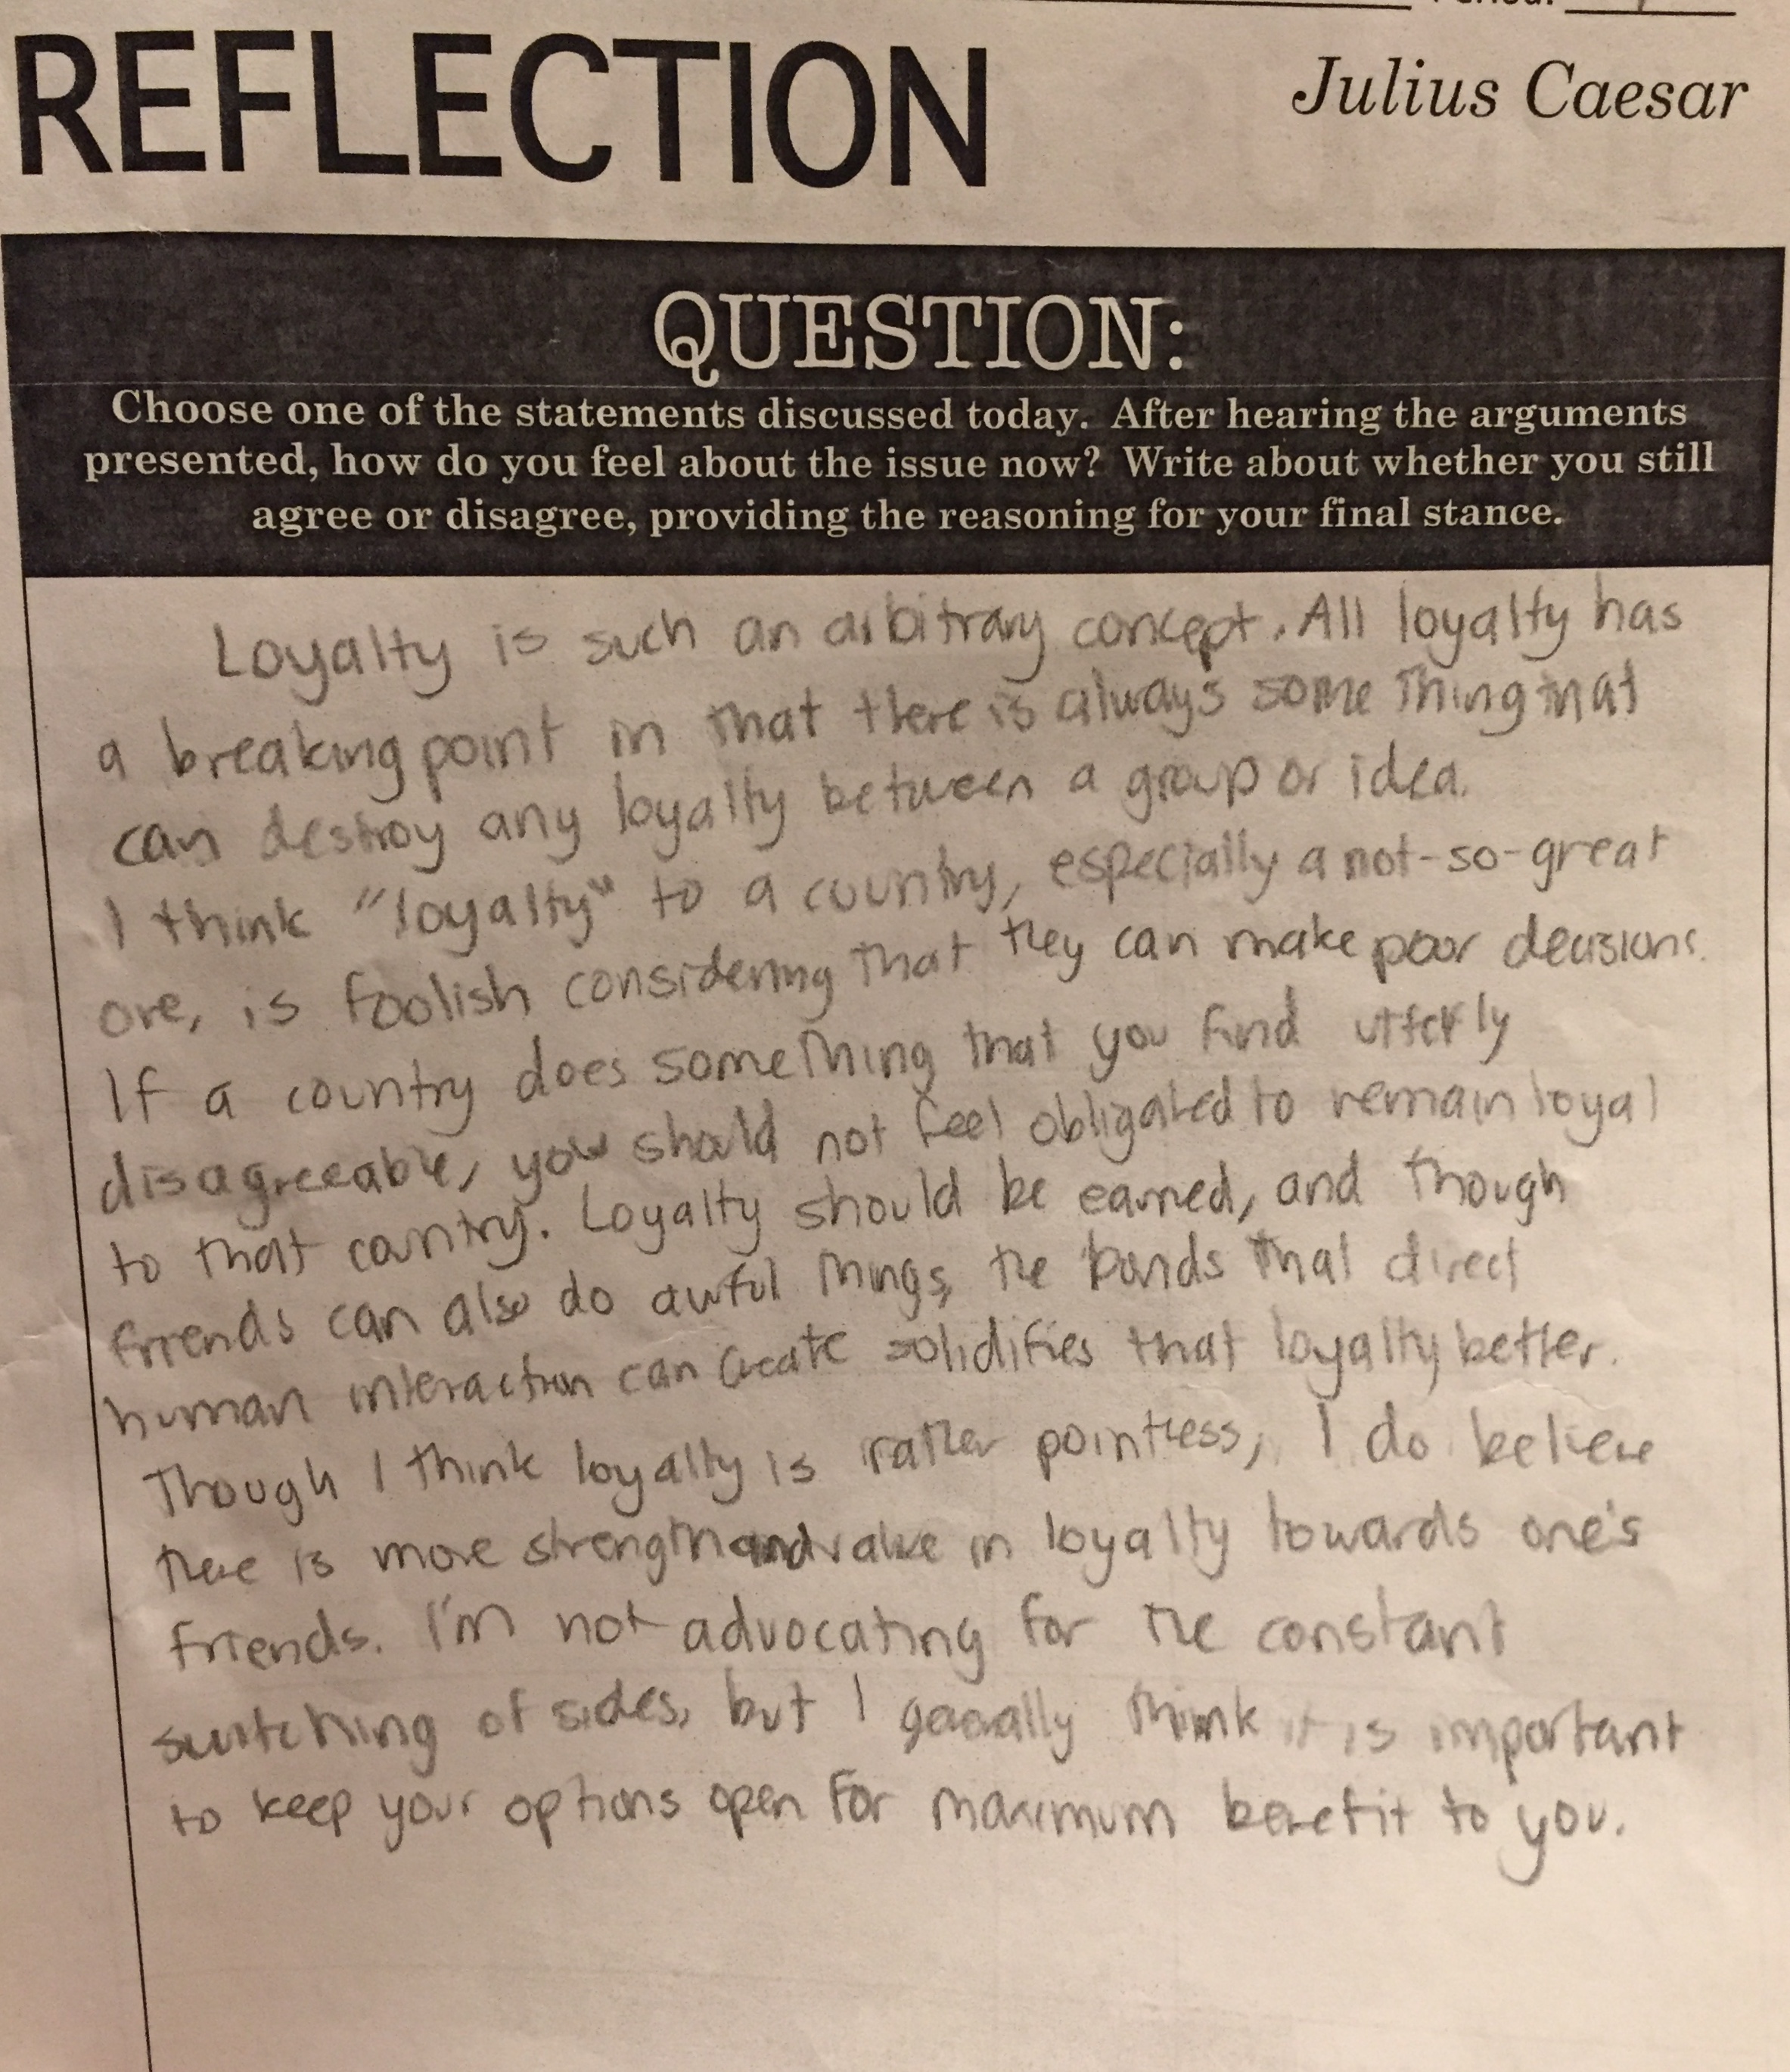 REFLECTION
Julius Caesar
QUESTION:
Choose one of the statements discussed today. After hearing the arguments
presented, how do you feel about the issue now? Write about whether you still
agree or disagree, providing the reasoning for your final stance.
Loyalty is such an arbitrary concept. All loyalty has
a breaking point in that there is always something that
can destroy any loyalty between a group or idea.
I think "loyalty" to a country, especially a not-so-great
one, is foolish considering that they can make poor decisions.
If a country does something that you find utterly
disagreeable, you should not feel obligated to remain loyal
to that country. Loyalty should be earned, and though
friends can also do awful things, the bonds that direct
human interaction can create solidifies that loyalty better.
Though I think loyalty is rather pointless, I do believe
there is more strength and value in loyalty towards one's
friends. I'm not advocating for the constant
switching of sides, but I generally think it is important
to keep your options open for maximum benefit to you.